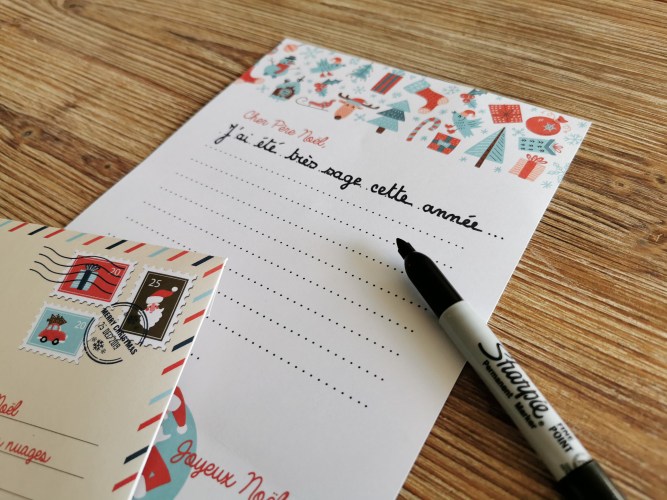 Cher Père Noël,
J'ai été très sage cette année
Joyeux Noël
10
25
20
MERRY CHRISTMAS
25 DEC 2019
Noël
nuages
Sharpie
Permanent Marker
FINE
POINT